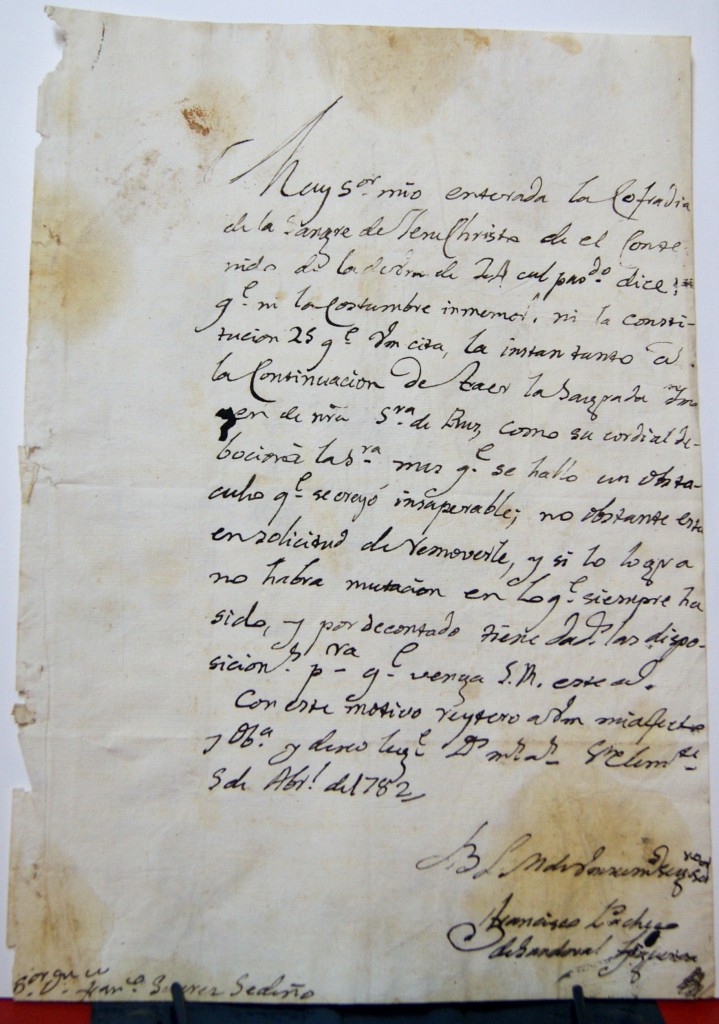 Muy Sor. mio enterada la Cofradia
de la Sangre de Jesu Christo de el Conte-
nido de la de Vm de 24 del pasdo. dice:
qe. ni la Costumbre inmemol. ni la consti-
tucion 25 qe. Vm cita, la instan tanto a
la Continuacion de traer la Sagrada Yma
gen de nra Sra. de Rus, como su cordial de-
bocion à la Sra. mas qe. se hallo un obsta-
culo qe. se creyó insuperable; no obstante esta
en solicitud de removerle, y si lo logra
no habra mutacion en lo qe. siempre ha
sido, y por decontado tiene dads. las dispo-
sicions. pra qe. venga S.M. este a.
Con este motivo reytero a Vm mi afecto
y Oba. y deseo le gue. Ds ms. as. Sn Clemte
5 de Abrl. de 1782
B L M de Vm su mas segro Sor
Francisco Pacheco
de Sandoval Figueroa
Sor Dn Franco Suarez Sedeño